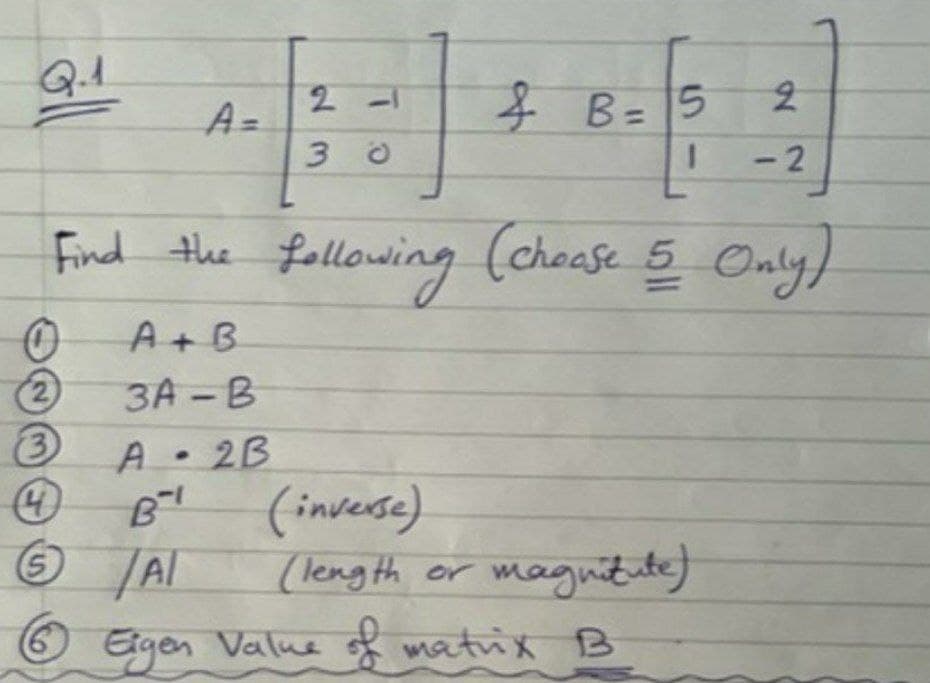 Q.1
A = [2 -1 & B = [5 2
3 0] 1 -2]
Find the following (choose 5 Only)
① A + B
② 3A - B
③ A • 2B
④ B⁻¹ (inverse)
⑤ |A| (length or magnitute)
⑥ Eigen Value of matrix B